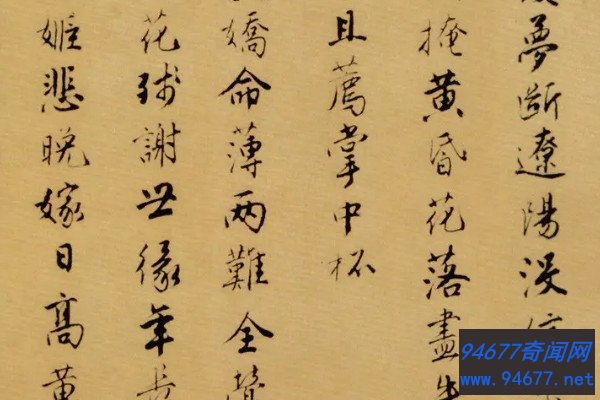 夢斷遼陽沒信
掩黃昏花落盡
且薦掌中杯
嬌命薄兩難全鬢
花殘謝世緣年長
姬悲晚嫁日高黃
94677奇闻网
www.94677.net